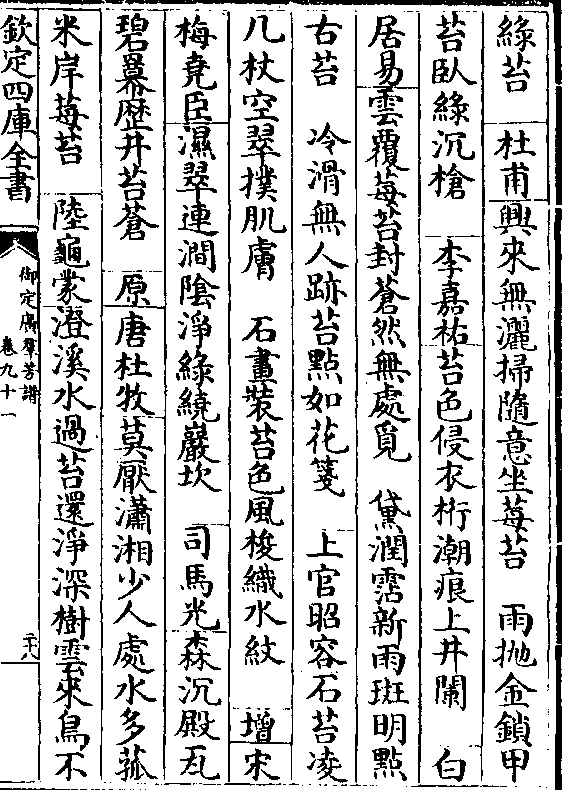 綠苔　杜甫興來無灑掃隨意坐莓苔　雨抛金鎖甲
苔臥綠沉槍　李嘉祐苔色侵衣桁潮痕上井闌　白
居易雲覆莓苔封蒼然無處覓　黛潤霑新雨斑明點
古苔　冷滑無人跡苔點如花箋　上官昭容石苔凌
几杖空翠撲肌膚　石畫裝苔色風梭織水紋　增宋
梅堯臣濕翠連澗陰淨綠繞巖坎　司馬光森沉殿瓦
碧羃歷井苔蒼　原唐杜牧莫厭瀟湘少人處水多菰
米岸莓苔　陸龜蒙澄溪水過苔還淨深樹雲來鳥不
欽定四庫全書
御定廣羣芳譜
卷九十一
二十八